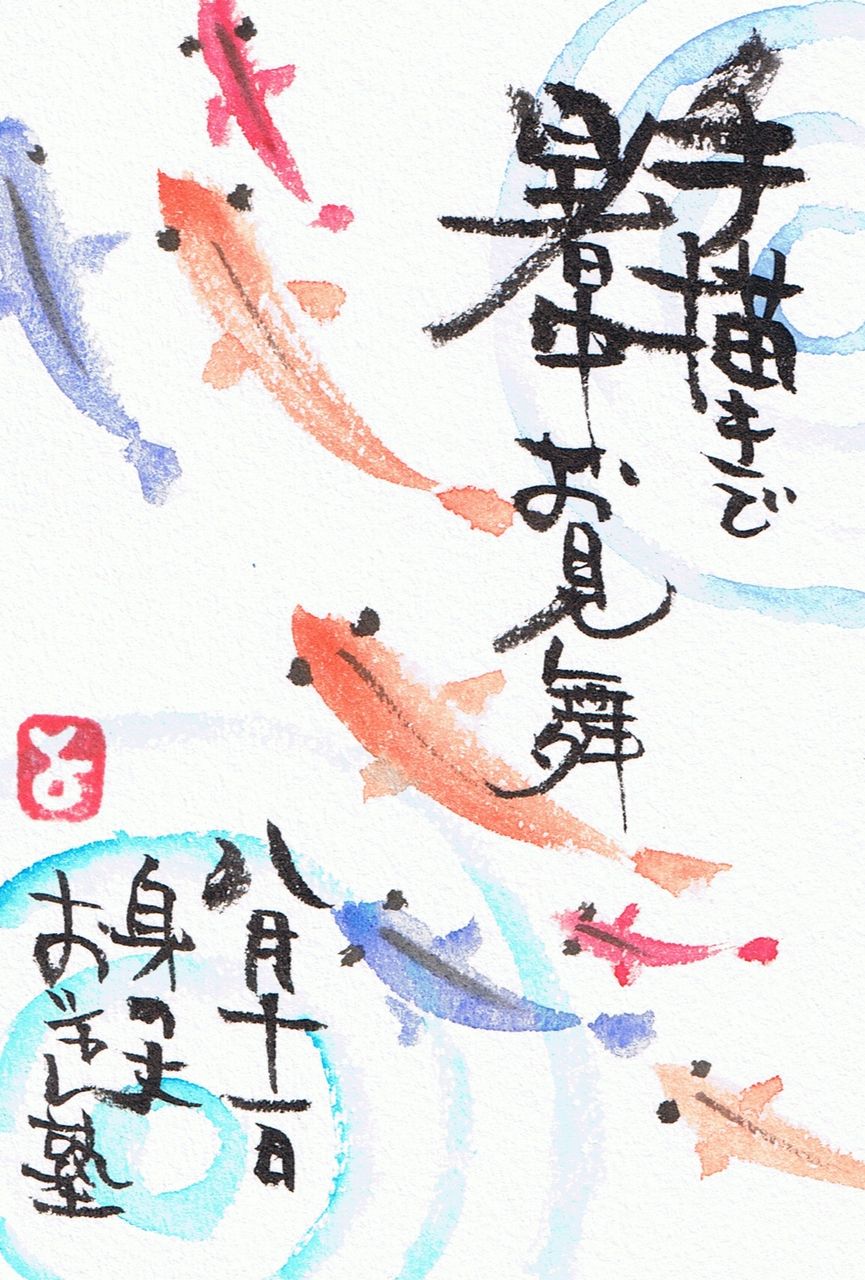 手描きで
暑中お見舞
八月十一日
身の丈
塾